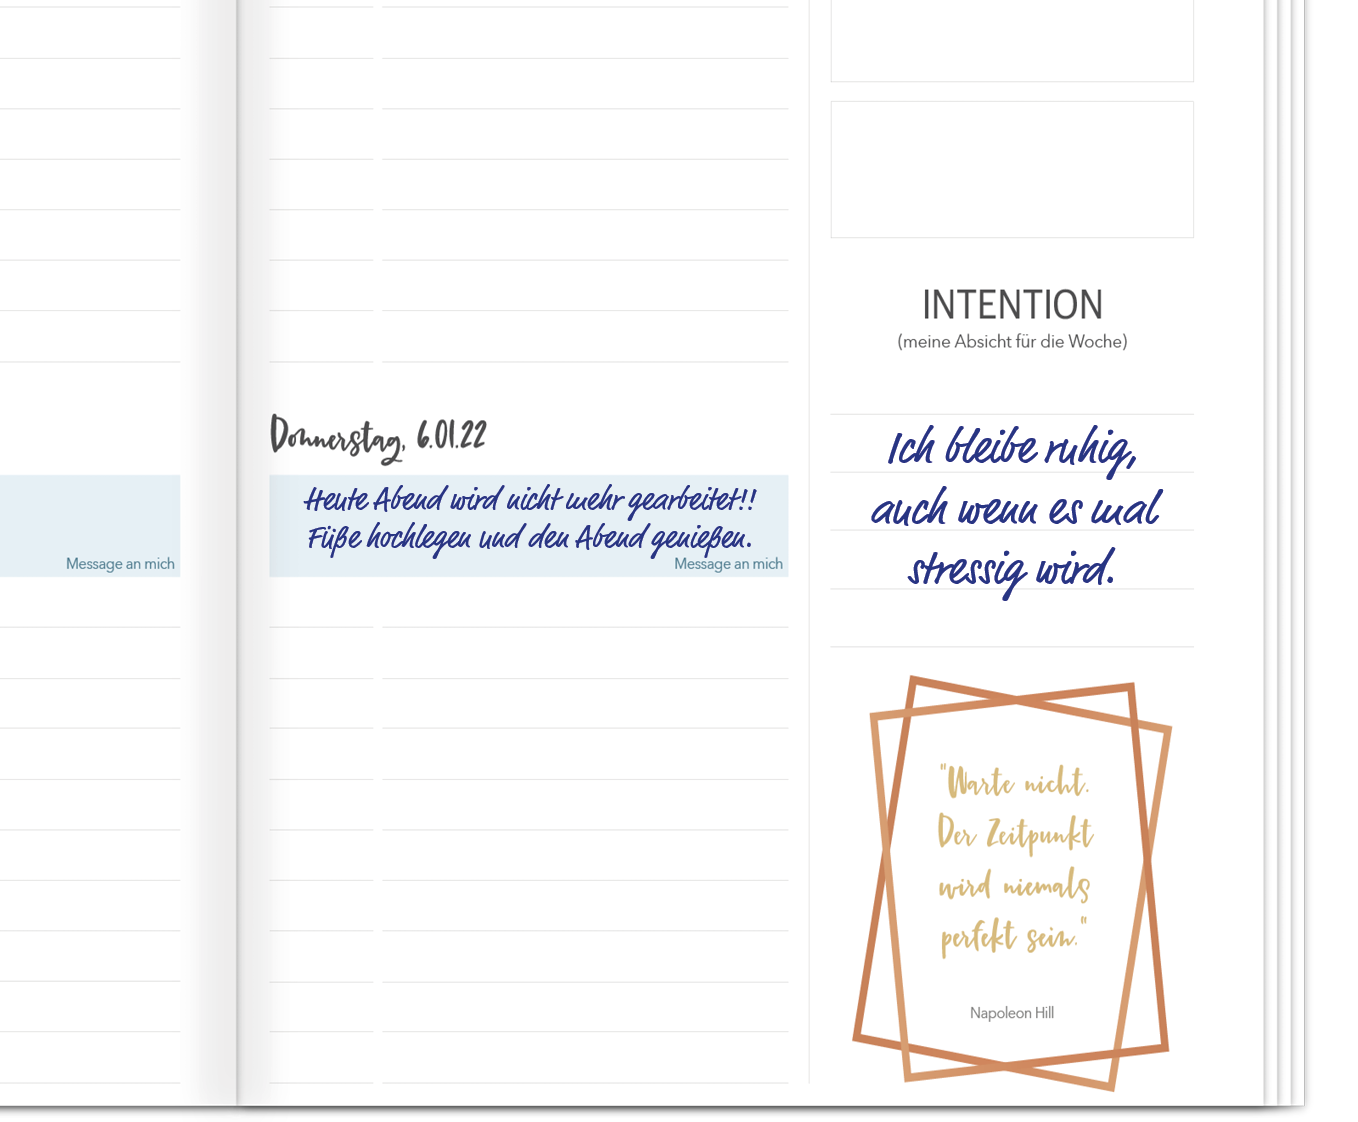 Message an mich
Donnerstag, 6.01.22
Heute Abend wird nicht mehr gearbeitet!!
Füße hochlegen und den Abend genießen.
Message an mich
INTENTION
(meine Absicht für die Woche)
Ich bleibe ruhig,
auch wenn es mal
stressig wird.
"Warte nicht.
Der Zeitpunkt
wird niemals
perfekt sein."
Napoleon Hill